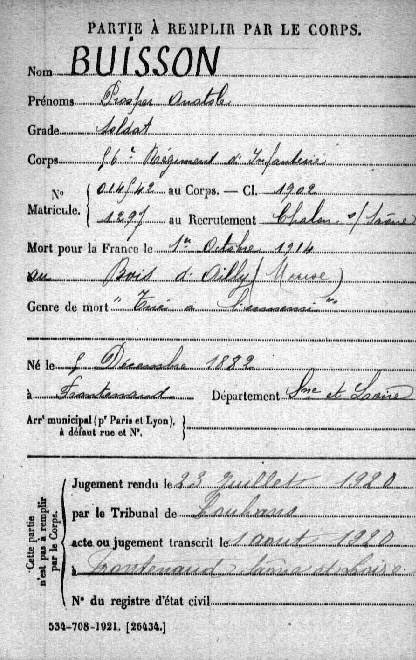 PARTIE À REMPLIR PAR LE CORPS.
Nom BUISSON
Prénoms Prosper Anatole
Grade Soldat
Corps 56e Régiment d'Infanterie
N° Matricule. 014542 au Corps. — Cl. 1902
1297 au Recrutement Chalon s/Saône
Mort pour la France le 1er Octobre 1914
au Bois d'Ailly (Meuse)
Genre de mort "Tué à l'ennemi"
Né le 5 Décembre 1882
à Frontenaud Département Sne et Loire
Arrt municipal (pr Paris et Lyon), à défaut rue et N°.
Cette partie n'est pas à remplir par le Corps.
Jugement rendu le 23 Juillet 1920
par le Tribunal de Louhans
acte ou jugement transcrit le 1 août 1920
à Frontenaud Saône et Loire
N° du registre d'état civil
534-708-1921. [26434.]